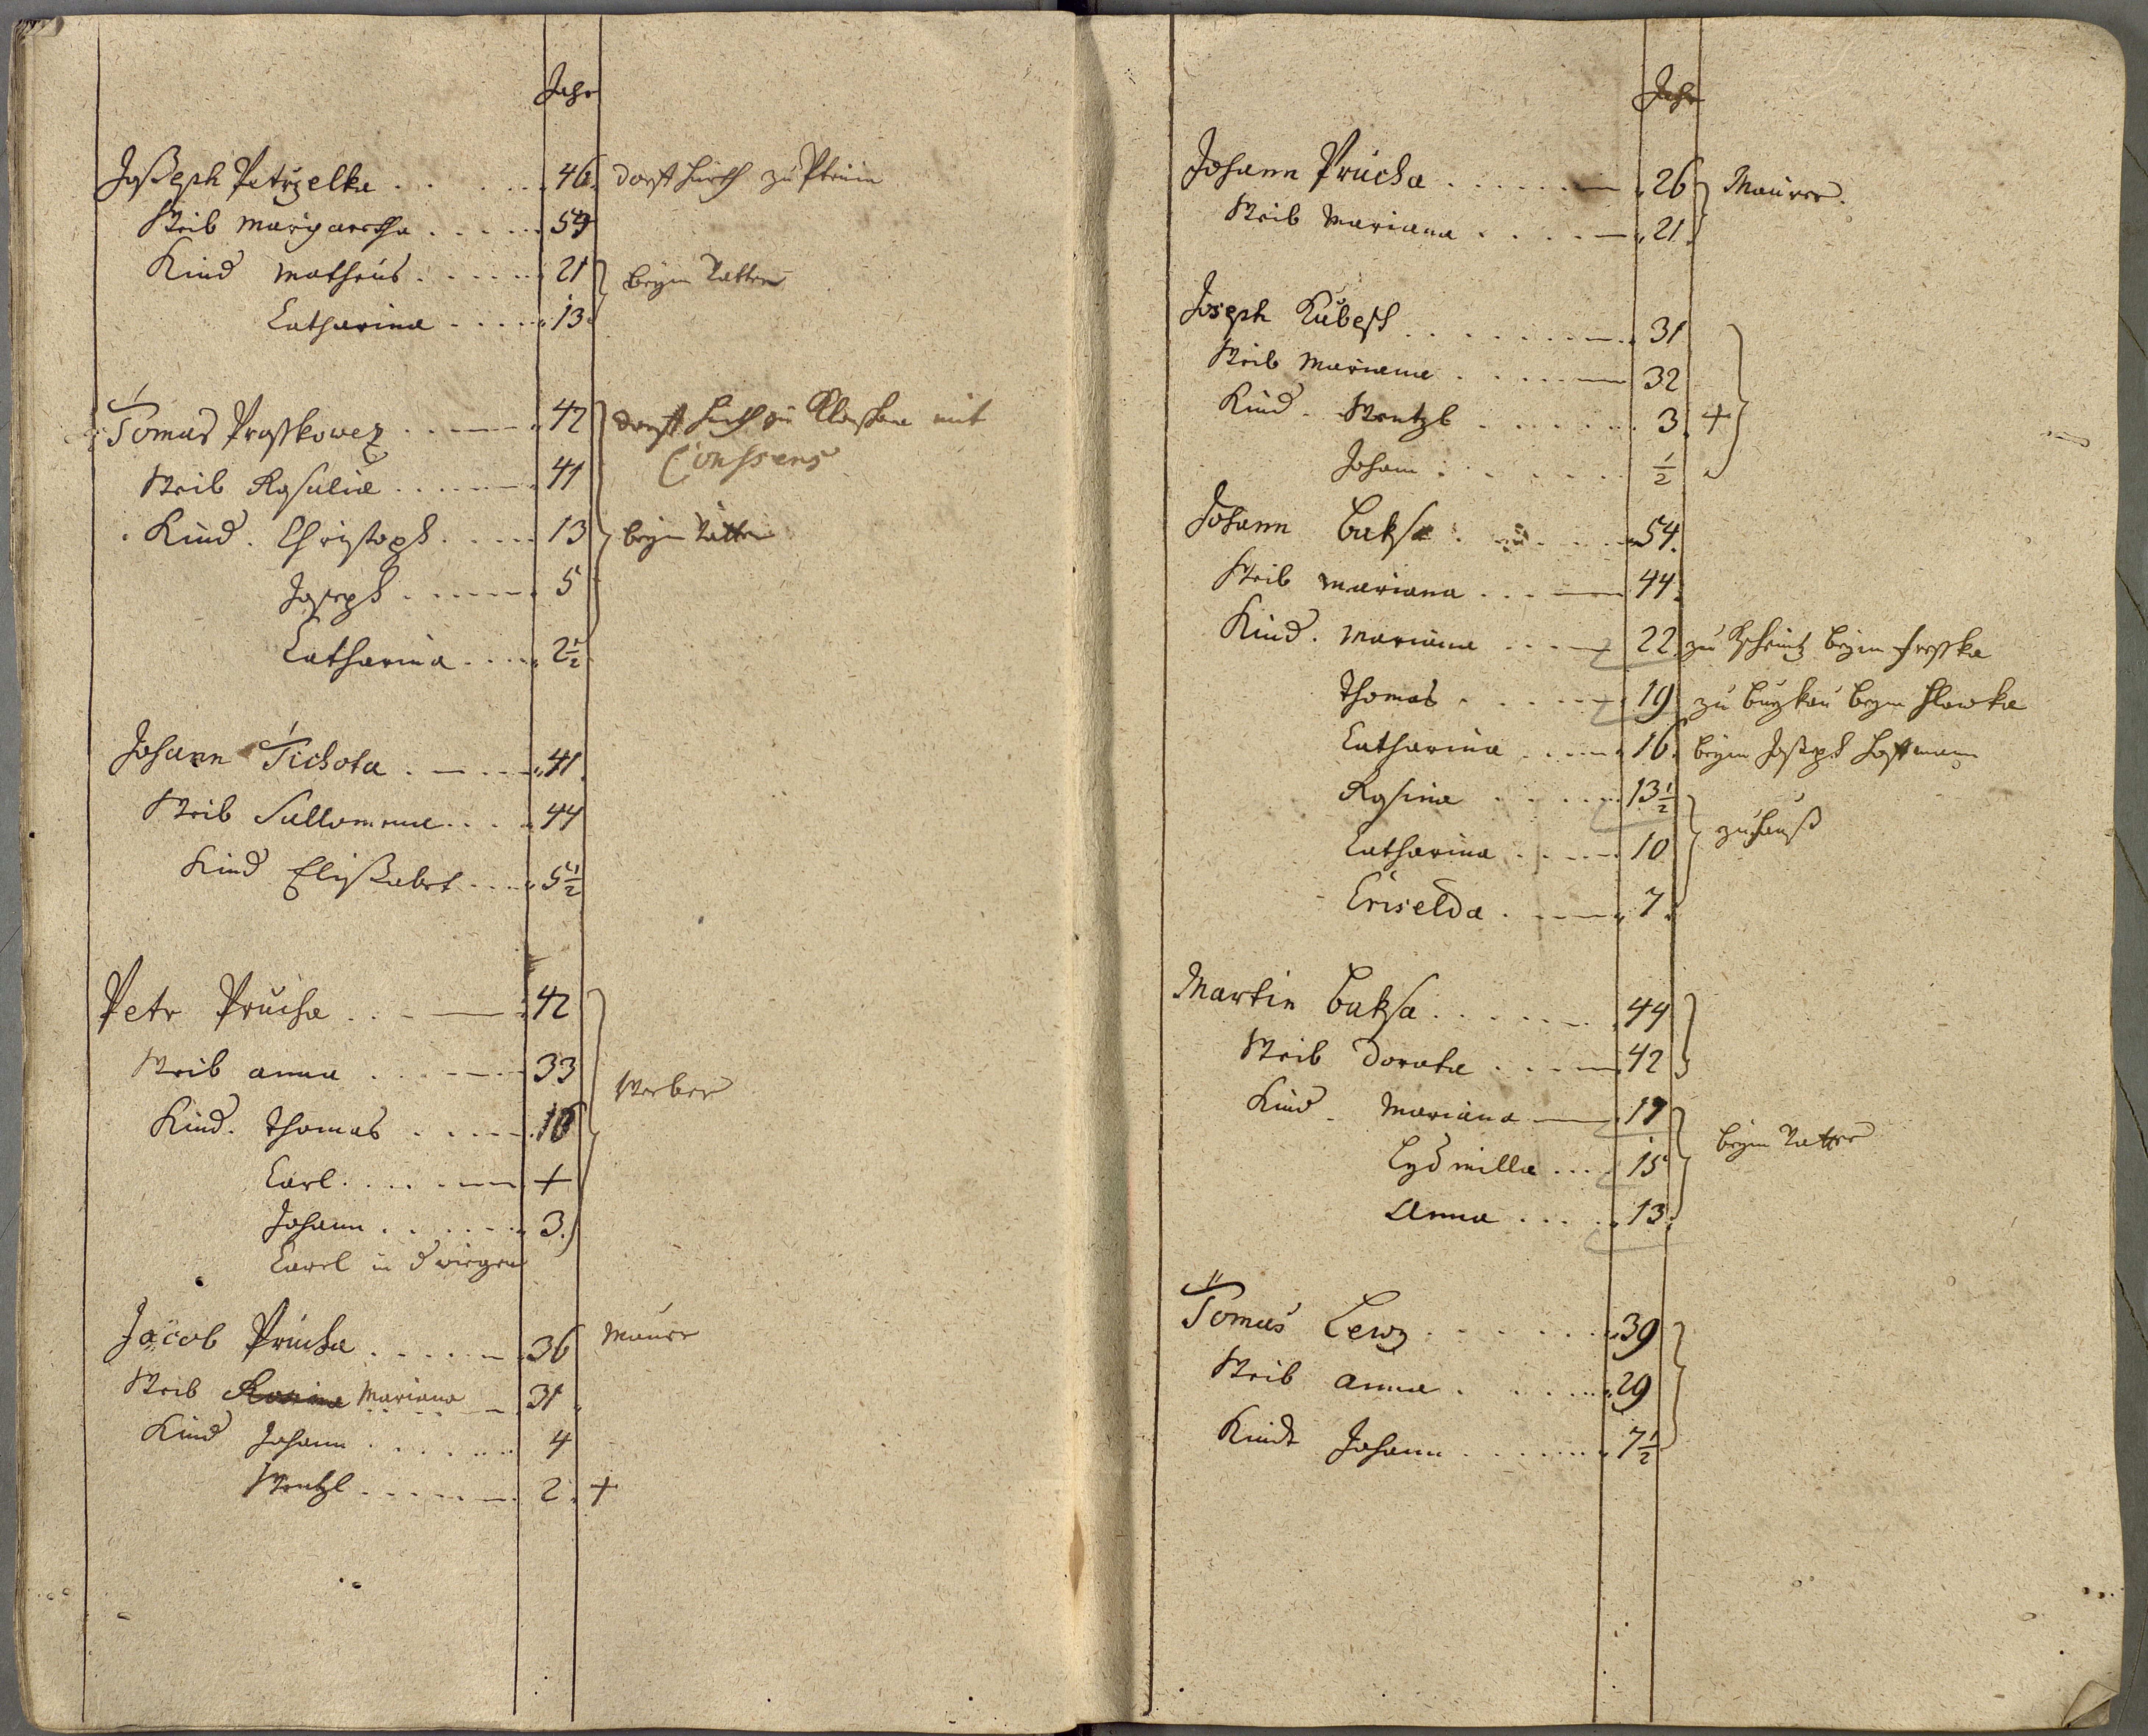 Jahr
Joseph Petrzelka . . . . . 46. dorff hirth zu Ptenin
Weib Margaretha . . . . . 54
Kind Matheus . . . . . 21 beym Vatter
Catharina . . . . 13
Tomas Prosskowez . . . . 42 dorff hirth zu mit
Consens
Weib Rosalia . . . . . 41
Kind. Christoph . . . . 13 beym Vatter
Joseph . . . . . 5
Catharina . . . . 2½
Johann Tichota . . . . 41.
Weib Sallomena . . . 44
Kind Elisabet . . . 5½
Petr Prucha . . . 42
Weib Anna . . . . . 33 Weber
Kind. Thomas . . . . . 10
Carl . . . . . +
Johann . . . . . . 3.
Carel in d wiegen
Jacob Prucha . . . . . 36 Maurer
Weib Rosina Mariana 31
Kind Johann . . . . . . 4
Wentzl . . . . . 2. +
Jahr
Johann Prucha . . . . . . 26 Maurer.
Weib Mariana . . . . 21.
Joseph Kubesch . . . . . . . 31
Weib Mariana . . . . . 32
Kind. Wentzl . . . . . . 3. +
Johann . . . . . ½
Johann Baksa . . . . . 54.
Weib Mariana . . . . 44.
Kind. Mariana . . . . 22 zu beym
Thomas . . . . . 19 zu beym Hlawka
Catharina . . . . . 16. beym Joseph Hoffmann
Rosina . . . . . 13½
zuhauß
Catharina . . . . . 10
Criselda . . . . 7.
Martin Baksa . . . . . . . 44
Weib Dorota . . . . . 42
Kind. Mariana 17
beym Vatter
Lydmilla . . . . 15
Anna . . . . . 13.
Tomas Lewy . . . . . . . 39
Weib Anna . . . . . . 29
Kindt Johann . . . . . . 7½